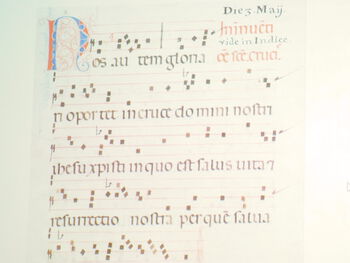 Die 3. Maij
In inuēti
vide in Indice
oē scē. cruci
Nos au tem gloria
ri opor tet in cruce do mini nostri
ihesu xpisti in quo est salus uita
resurrectio nostra per quē salua